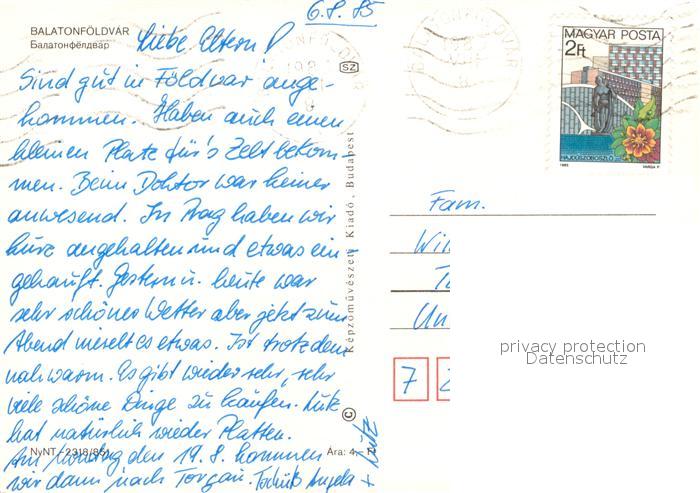 6.8.85
BALATONFÖLDVÁR
Балатонфёлдвар
Liebe Eltern!
Sind gut in Földvar ange-
kommen. Haben auch einen
kleinen Platz für's Zelt bekom-
men. Beim Doktor war keiner
anwesend. In Prag haben wir
kurz angehalten und etwas ein-
gekauft. Gestern u. heute war
sehr schönes Wetter aber jetzt zum
Abend nieselt es etwas. Ist trotzdem
noch warm. Es gibt wieder sehr, sehr
viele schöne Dinge zu kaufen. Lutz
hat natürlich wieder Platten.
Am Montag den 19.8. kommen
wir dann nach Torgau. Tschüß Angela
+ Lutz
NyNT–2318/851
Ára: 4,– Ft
SZ
Képzőművészeti Kiadó, Budapest
©
MAGYAR POSTA
2Ft
HAJDÚSZOBOSZLÓ
1985
VARGA P.
Fam.
Wil
To
Un
7 2
privacy protection
Datenschutz